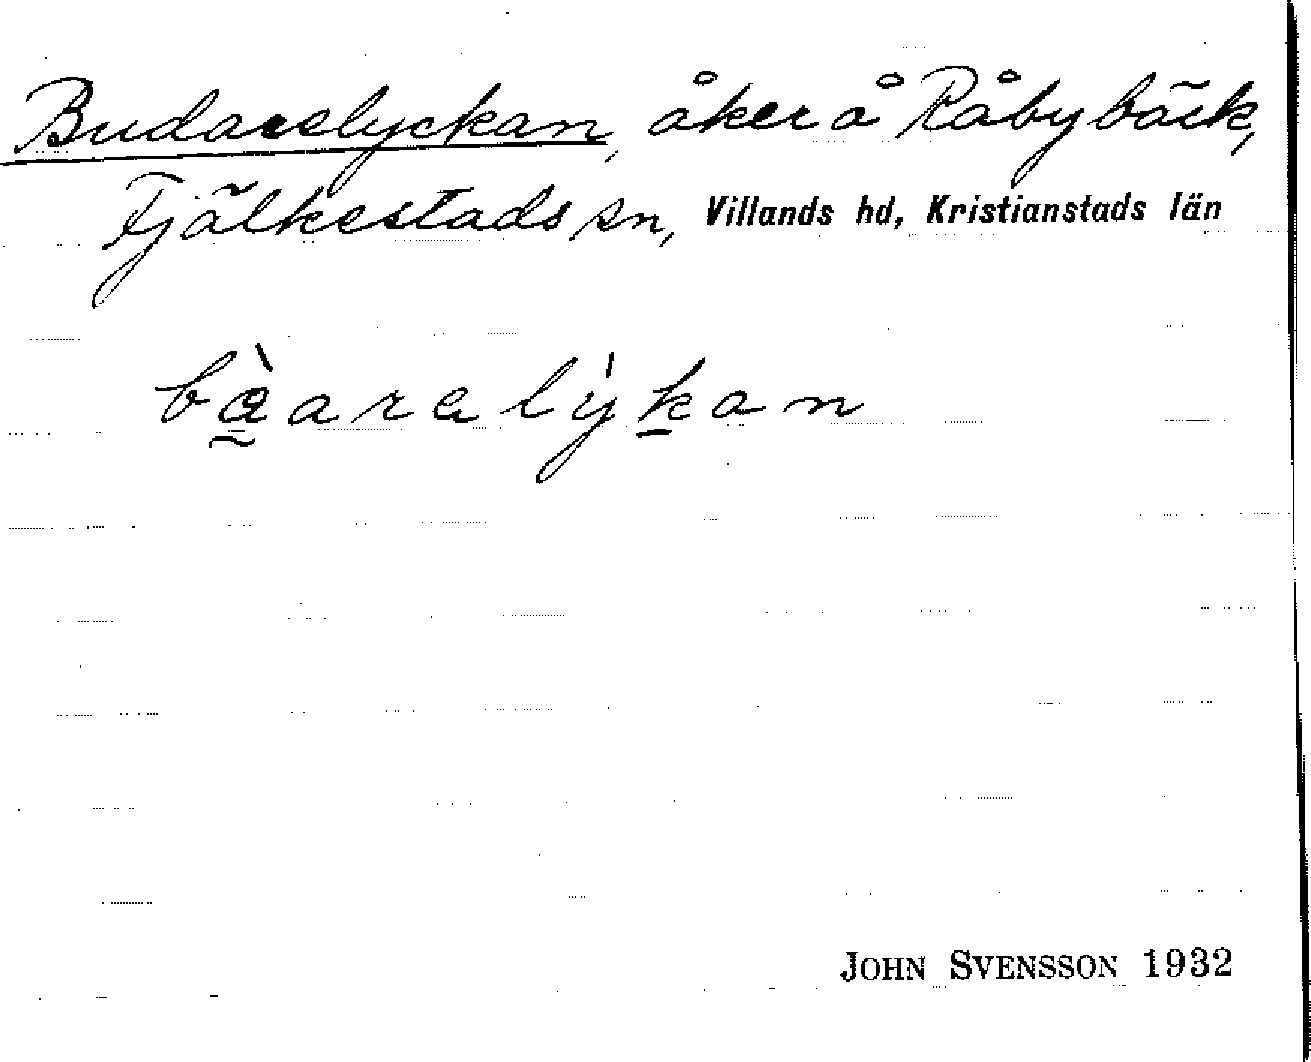 Budarelyckan, åker å Råbybäck,
Fjälkestads sn, Villands hd, Kristianstads län
JOHN SVENSSON 1932